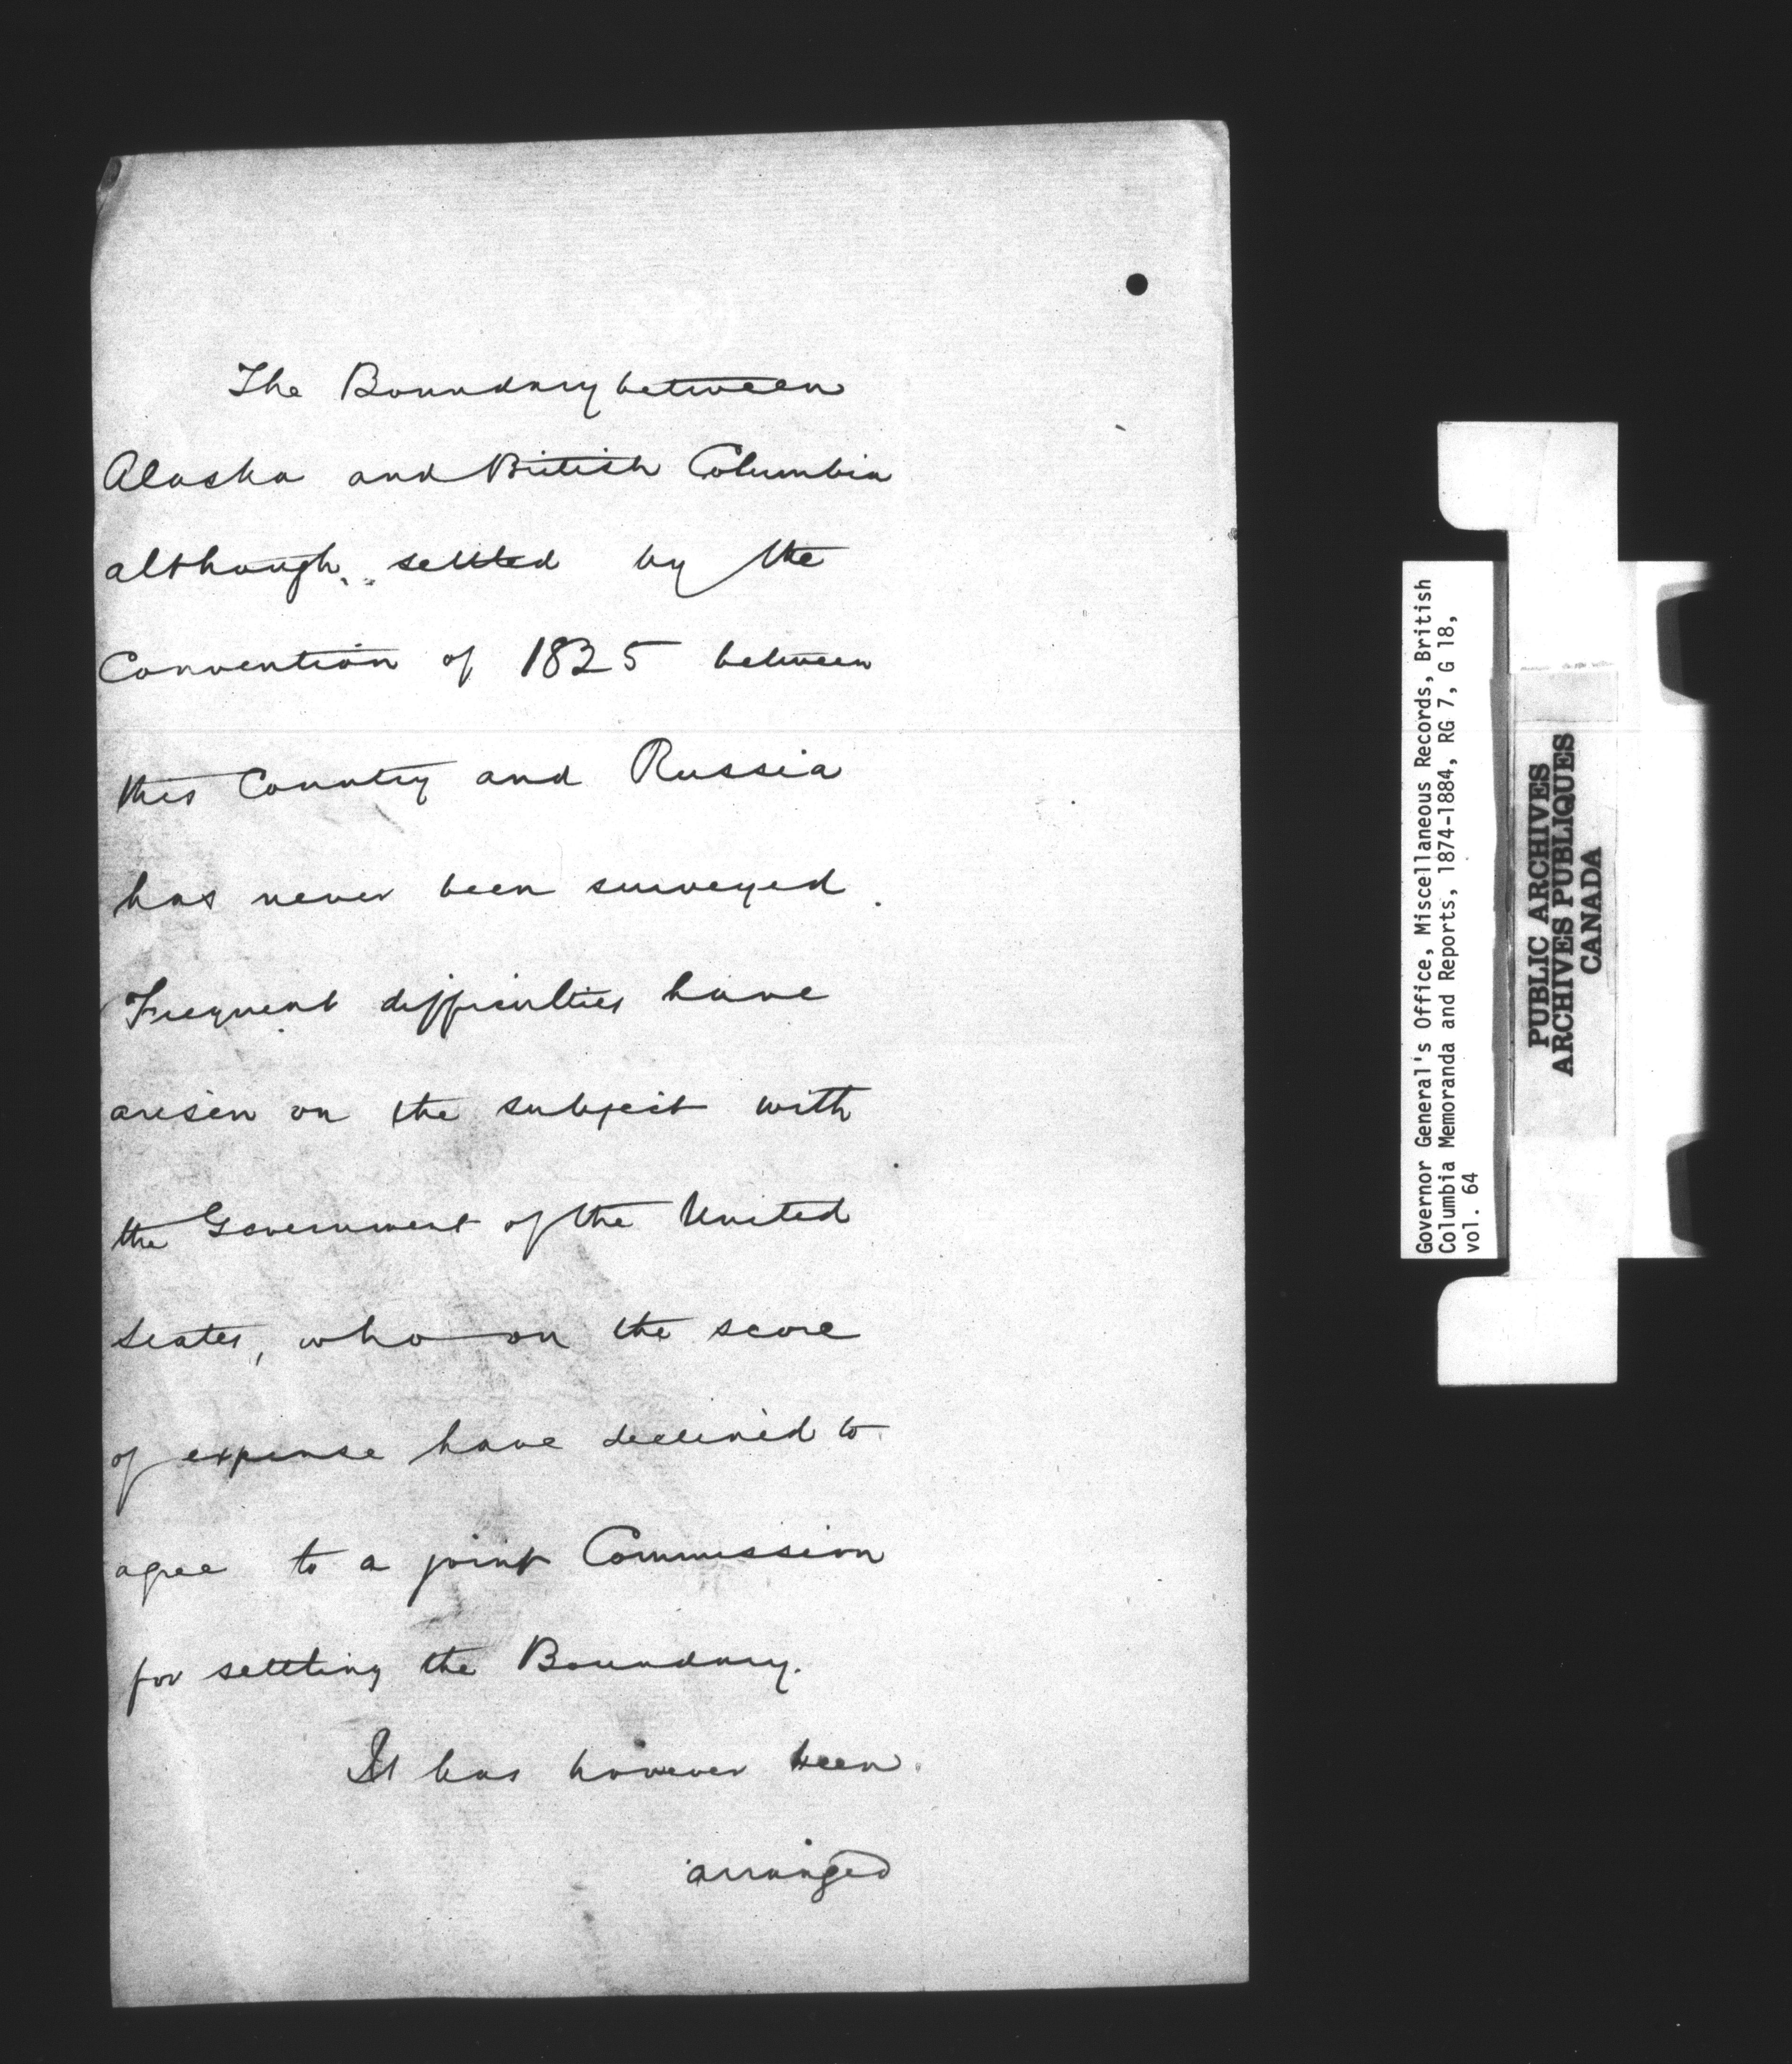 The Boundary between
Alaska and British Columbia
although settled by the
Convention of 1825 between
this Country and Russia
has never been surveyed.
Frequent difficulties have
arisen on the subject with
the Government of the United
States, who on the score
of expense have declined to
agree to a joint Commission
for settling the Boundary.
It has however been
arranged
Governor General's Office, Miscellaneous Records, British
Columbia Memoranda and Reports, 1874-1884, RG 7, G 18,
vol. 64
PUBLIC ARCHIVES
ARCHIVES PUBLIQUES
CANADA